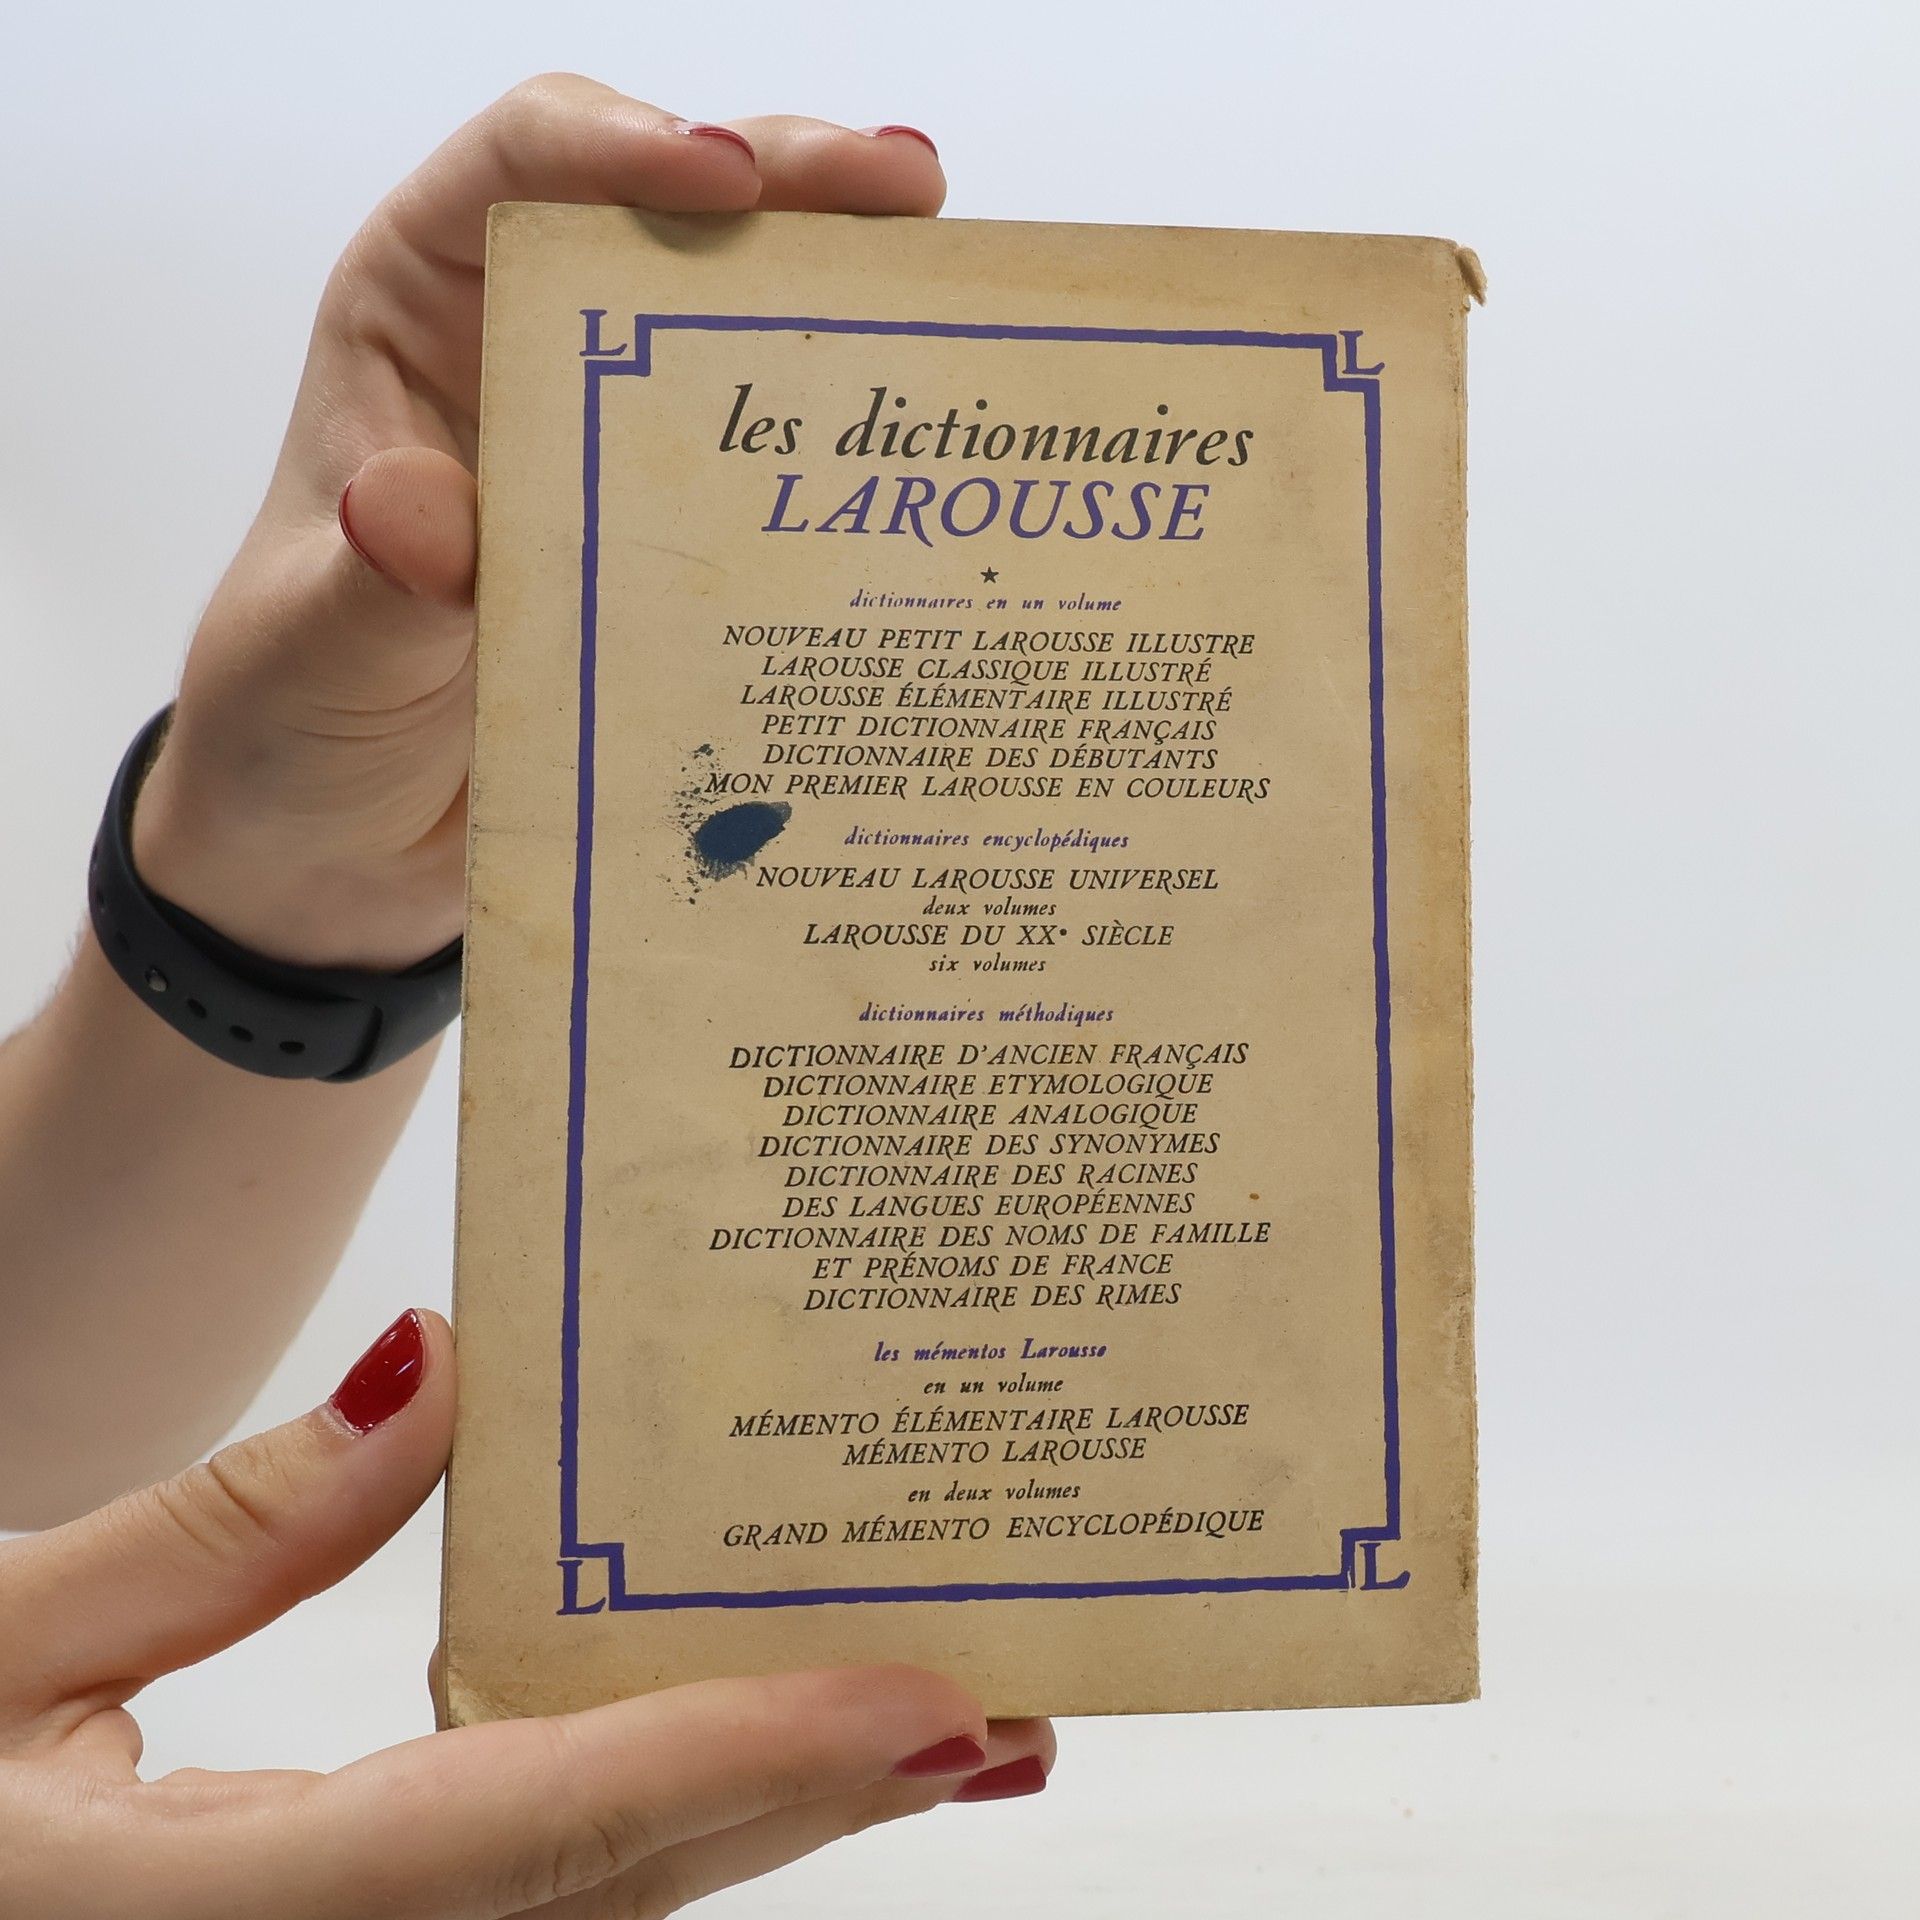 L L
les dictionnaires
LAROUSSE
★
dictionnaires en un volume
NOUVEAU PETIT LAROUSSE ILLUSTRE
LAROUSSE CLASSIQUE ILLUSTRÉ
LAROUSSE ÉLÉMENTAIRE ILLUSTRÉ
PETIT DICTIONNAIRE FRANÇAIS
DICTIONNAIRE DES DÉBUTANTS
MON PREMIER LAROUSSE EN COULEURS
dictionnaires encyclopédiques
NOUVEAU LAROUSSE UNIVERSEL
deux volumes
LAROUSSE DU XXe SIÈCLE
six volumes
dictionnaires méthodiques
DICTIONNAIRE D'ANCIEN FRANÇAIS
DICTIONNAIRE ETYMOLOGIQUE
DICTIONNAIRE ANALOGIQUE
DICTIONNAIRE DES SYNONYMES
DICTIONNAIRE DES RACINES
DES LANGUES EUROPÉENNES
DICTIONNAIRE DES NOMS DE FAMILLE
ET PRÉNOMS DE FRANCE
DICTIONNAIRE DES RIMES
les mémentos Larousse
en un volume
MÉMENTO ÉLÉMENTAIRE LAROUSSE
MÉMENTO LAROUSSE
en deux volumes
GRAND MÉMENTO ENCYCLOPÉDIQUE
L L